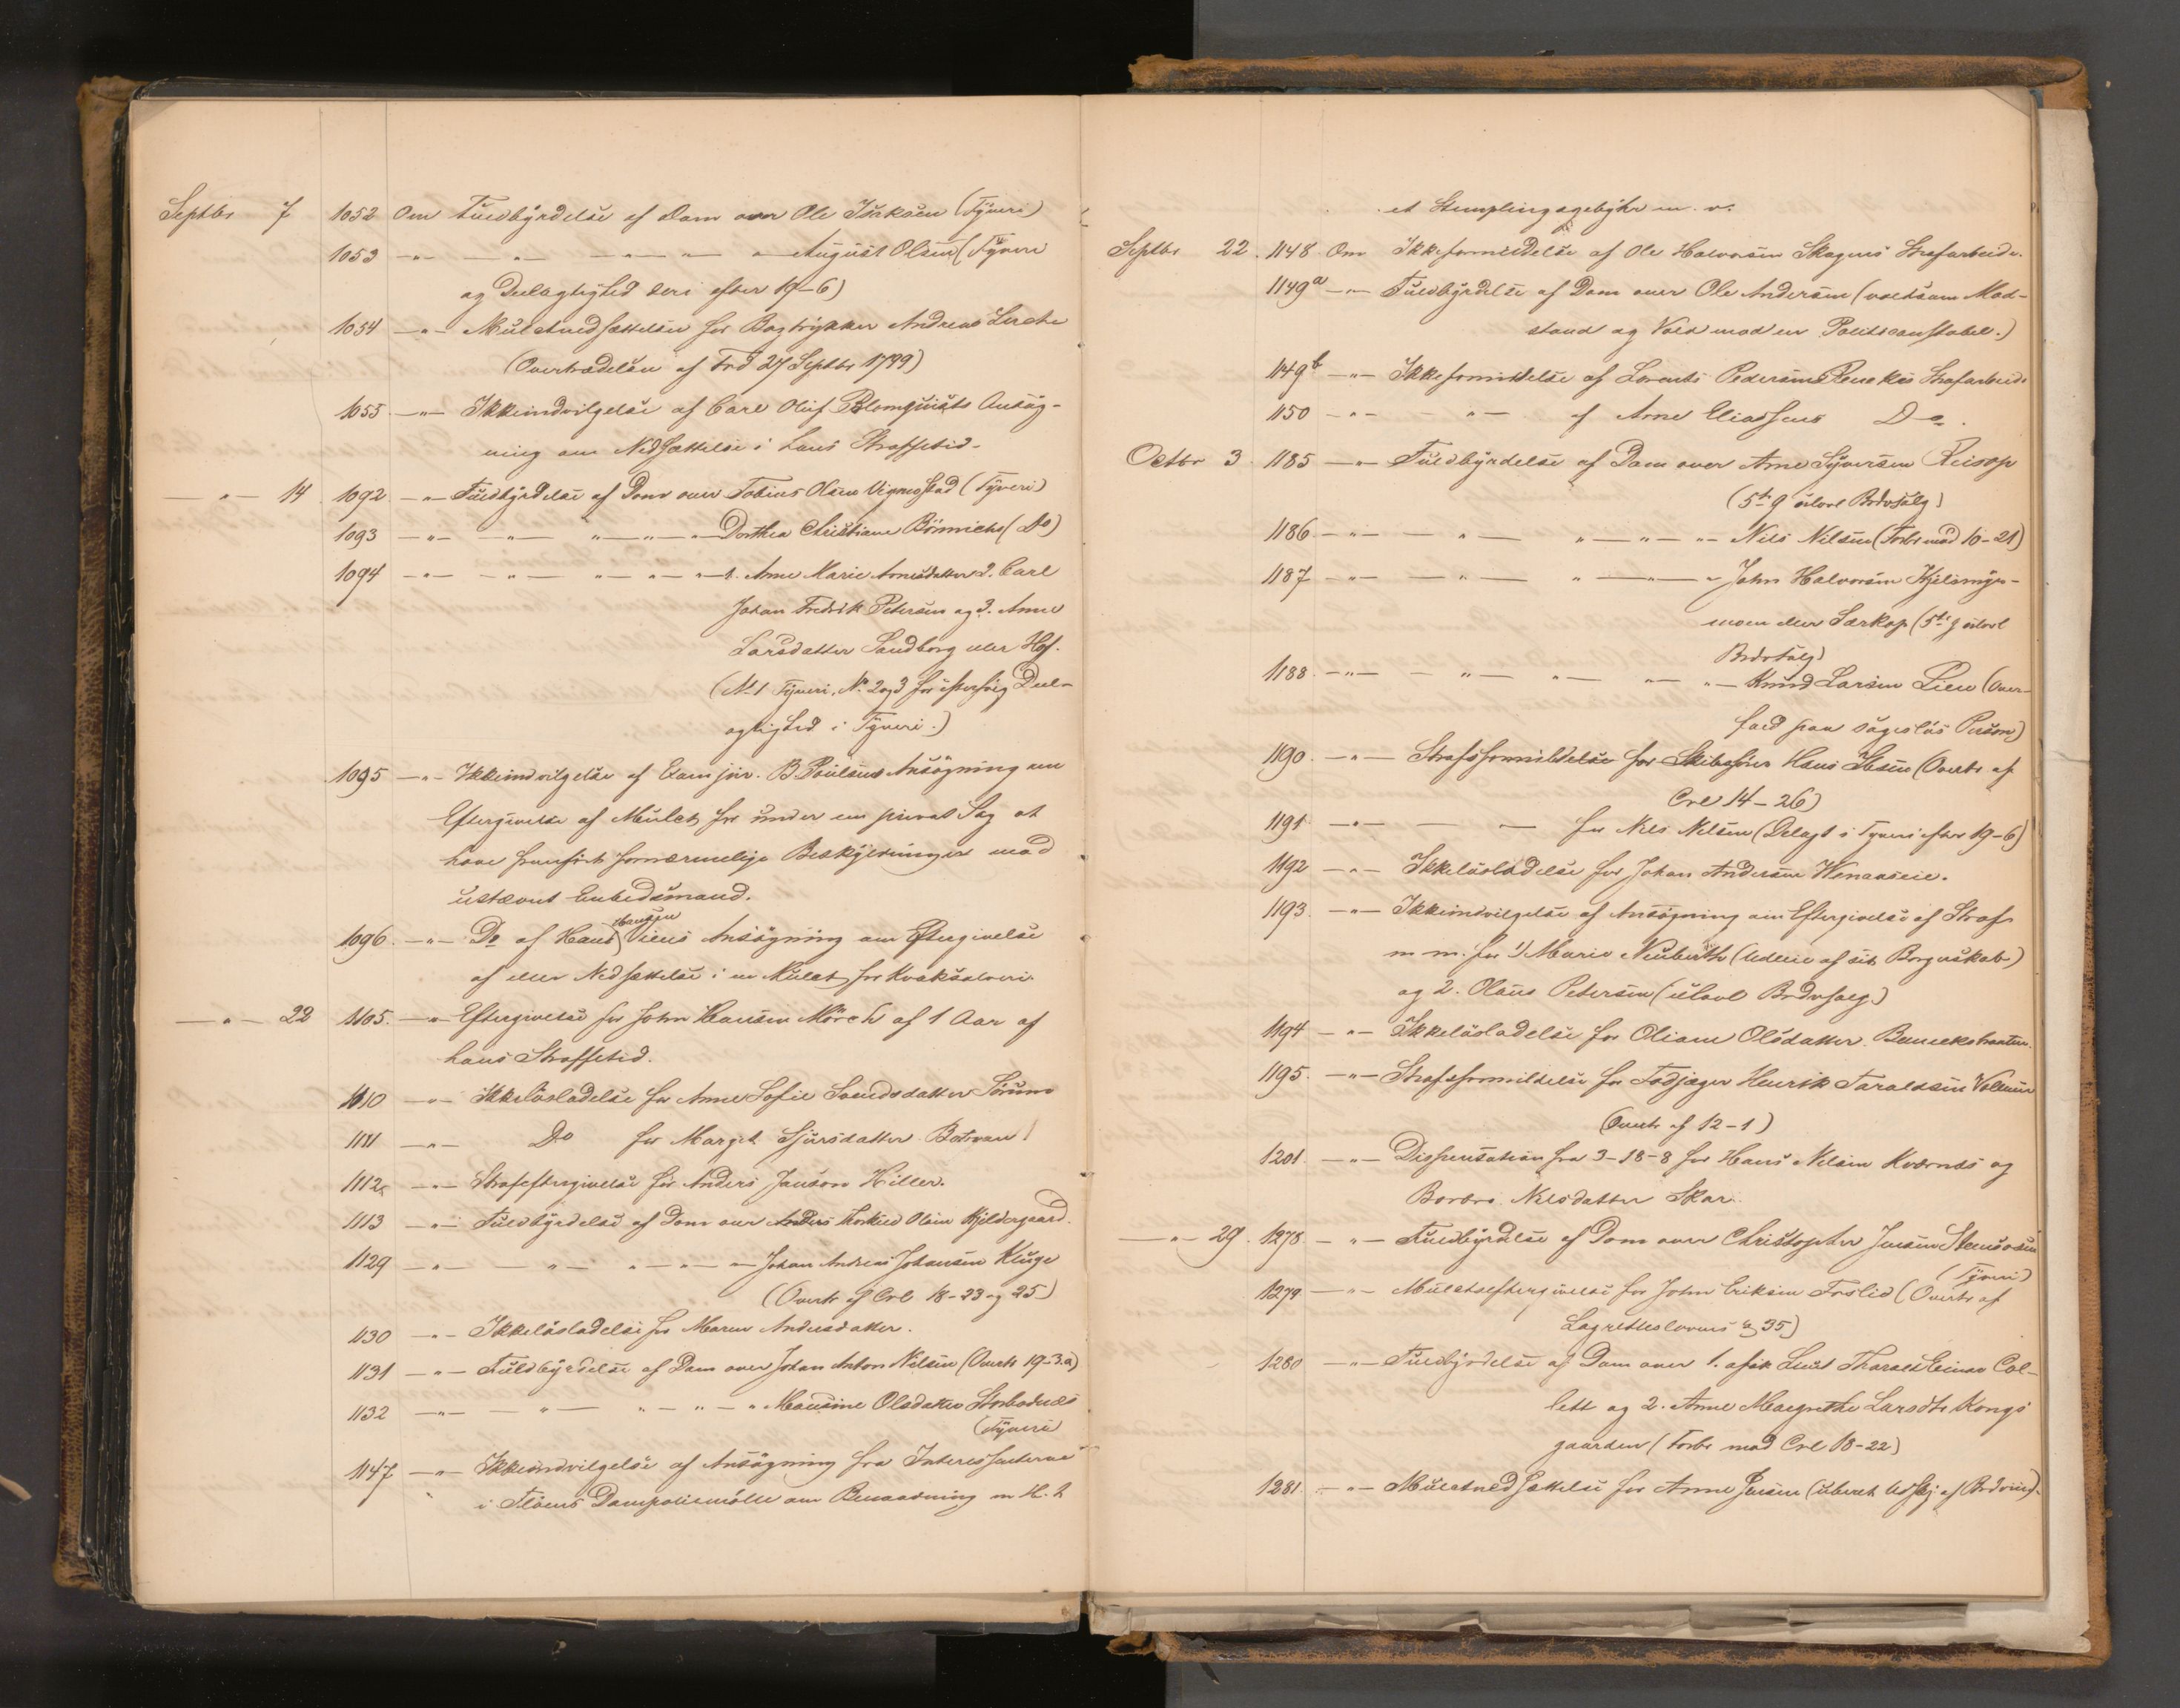 Septbr 7 1052 Om Fuldbyrdelse af Dom over Ole Isaksen (Tyveri)
1053 —"— — " — — " — " — August Olsen (Tyveri
og Deelagtighed deri efter 19-6)
1054 —"— Mulctnedsættelse for Bogtrykker Andreas Lerche
(Overtrædelse af Frd 27 Septbr 1799)
1055 —"— Ikkeindvilgelse af Carl Oluf Blomquists Ansøg-
ning om Nedsættelse i hans Straffetid.
—"— 14 1092 —"— Fuldbyrdelse af Dom over Tobias Olsen Vigmostad (Tyveri)
1093 —"— —"— "—"—"— Dorthea Christiane Bönnichs (Do)
1094 —"— —"— "—"—"— 1. Anne Marie Arnesdatter 2. Carl
Johan Fredrik Petersen og 3. Anne
Larsdatter Sandborg eller Hof.
(No 1 Tyveri, No 2 og 3 for efterfølg. Deel-
agtighed i Tyveri.)
1095 —"— Ikkeindvilgelse af Exam jur. B. Poulsens Ansøgning om
Eftergivelse af Mulct for under en privat Sag at
have fremført fornærmelige Beskyldninger mod
ustævnt Embedsmand.
1096 —"— Do af Hans Hanssen Viens Ansøgning om Eftergivelse
af eller Nedsættelse i en Mulct for Kvaksalveri
—"— 22 1105 —"— Eftergivelse for John Hansen Mörch af 1 Aar af
hans Straffetid.
1110 —"— Ikkeløsladelse for Anne Sofie Svendsdatter Sörum
1111 —"— Do for Marget Sjursdatter
1112 —"— Strafeftergivelse for Anders Janson Hiller.
1113 —"— Fuldbyrdelse af Dom over Anders Torkild Olsen Kjeldergaard.
1129 —"— —"— "—"—"— Johan Andreas Johansen Kluge
(Overtr af Crl 18-23 og 25)
1130 —"— Ikkeløsladelse for Maren Andersdatter.
1131 —"— Fuldbyrdelse af Dom over Johan Anton Nilsen (Overtr 19-3.a)
1132 —"— —"— "—"—" Mansine Olsdatter
(Tyveri
1147 —"— Ikkeindvilgelse af Ansøgning fra Interessenterne
i Dampoliemølle om Benaadning m. H. t
et Stemplingsgebyhr m. v.
Septbr 22. 1148 Om Ikkeformildelse af Ole Halvorsen Skagens Strafarbeide.
1149a —"— Fuldbyrdelse af Dom over Ole Andersen (voldsom Mod-
stand og Vold mod en Politiconstabel.)
1149b —"— Ikkeformildelse af Lorents Pedersen Strafarbeide
1150 —"— "— af Arne Eliassens Do.
Octbr 3 1185 —"— Fuldbyrdelse af Dom over Arne Syversen Reisop
(5te G ulovl Brdvsalg)
1186 —"— —"— "—"—"— Nils Nilsen (Forbr mod 10-21)
1187 —"— —"— "—"—"— John Halvorsen Kjelsmyr-
moen eller Særkop (5te g ulovl
Brdvsalg)
1188 —"— —"— "—"—"— Knud Larsen Lien (Over-
fald paa sagesløs Person)
1190 —"— Strafformildelse for Skibsfører Hans Ibsen (Overtr af
Crl 14-26)
1191 —"— —"— for Nils Nilsen (Delagt i Tyveri efter 19-6)
1192 —"— Ikkeløsladelse for Johan Andersen Wenaaseie.
1193 —"— Ikkeindvilgelse af Ansøgning om Eftergivelse af Straf
m m. for 1) Marie Neuberth (Udleie af sit Borgerskab)
og 2. Olaus Petersen (ulovl Brdvsalg.)
1194 —"— Ikkeløsladelse for Oliane Olsdatter
1195 —"— Strafformildelse for Fodjæger Henrik Taraldsen
(Overtr af 12-1)
1201 —"— Dispensation fra 3-18-8 for Hans Nilsen Kværnes og
Barbro Nilsdatter Skar.
—"— 29. 1278 —"— Fuldbyrdelse af Dom over Christopher Jensen
(Tyveri)
1279 —"— Mulctseftergivelse for John Eriksen Froslid (Overtr af
Lagretteslovens § 35)
1280 —"— Fuldbyrdelse af Dom over 1. afsk Lieut Tharald Einar Col-
lett og 2. Anne Margrethe Larsdtr Kongs
gaarden (Forbr mod Crl 18-22)
1281 —"— Mulctnedsættelse for Anne Jensen (uberet Udskj af Brdviin).